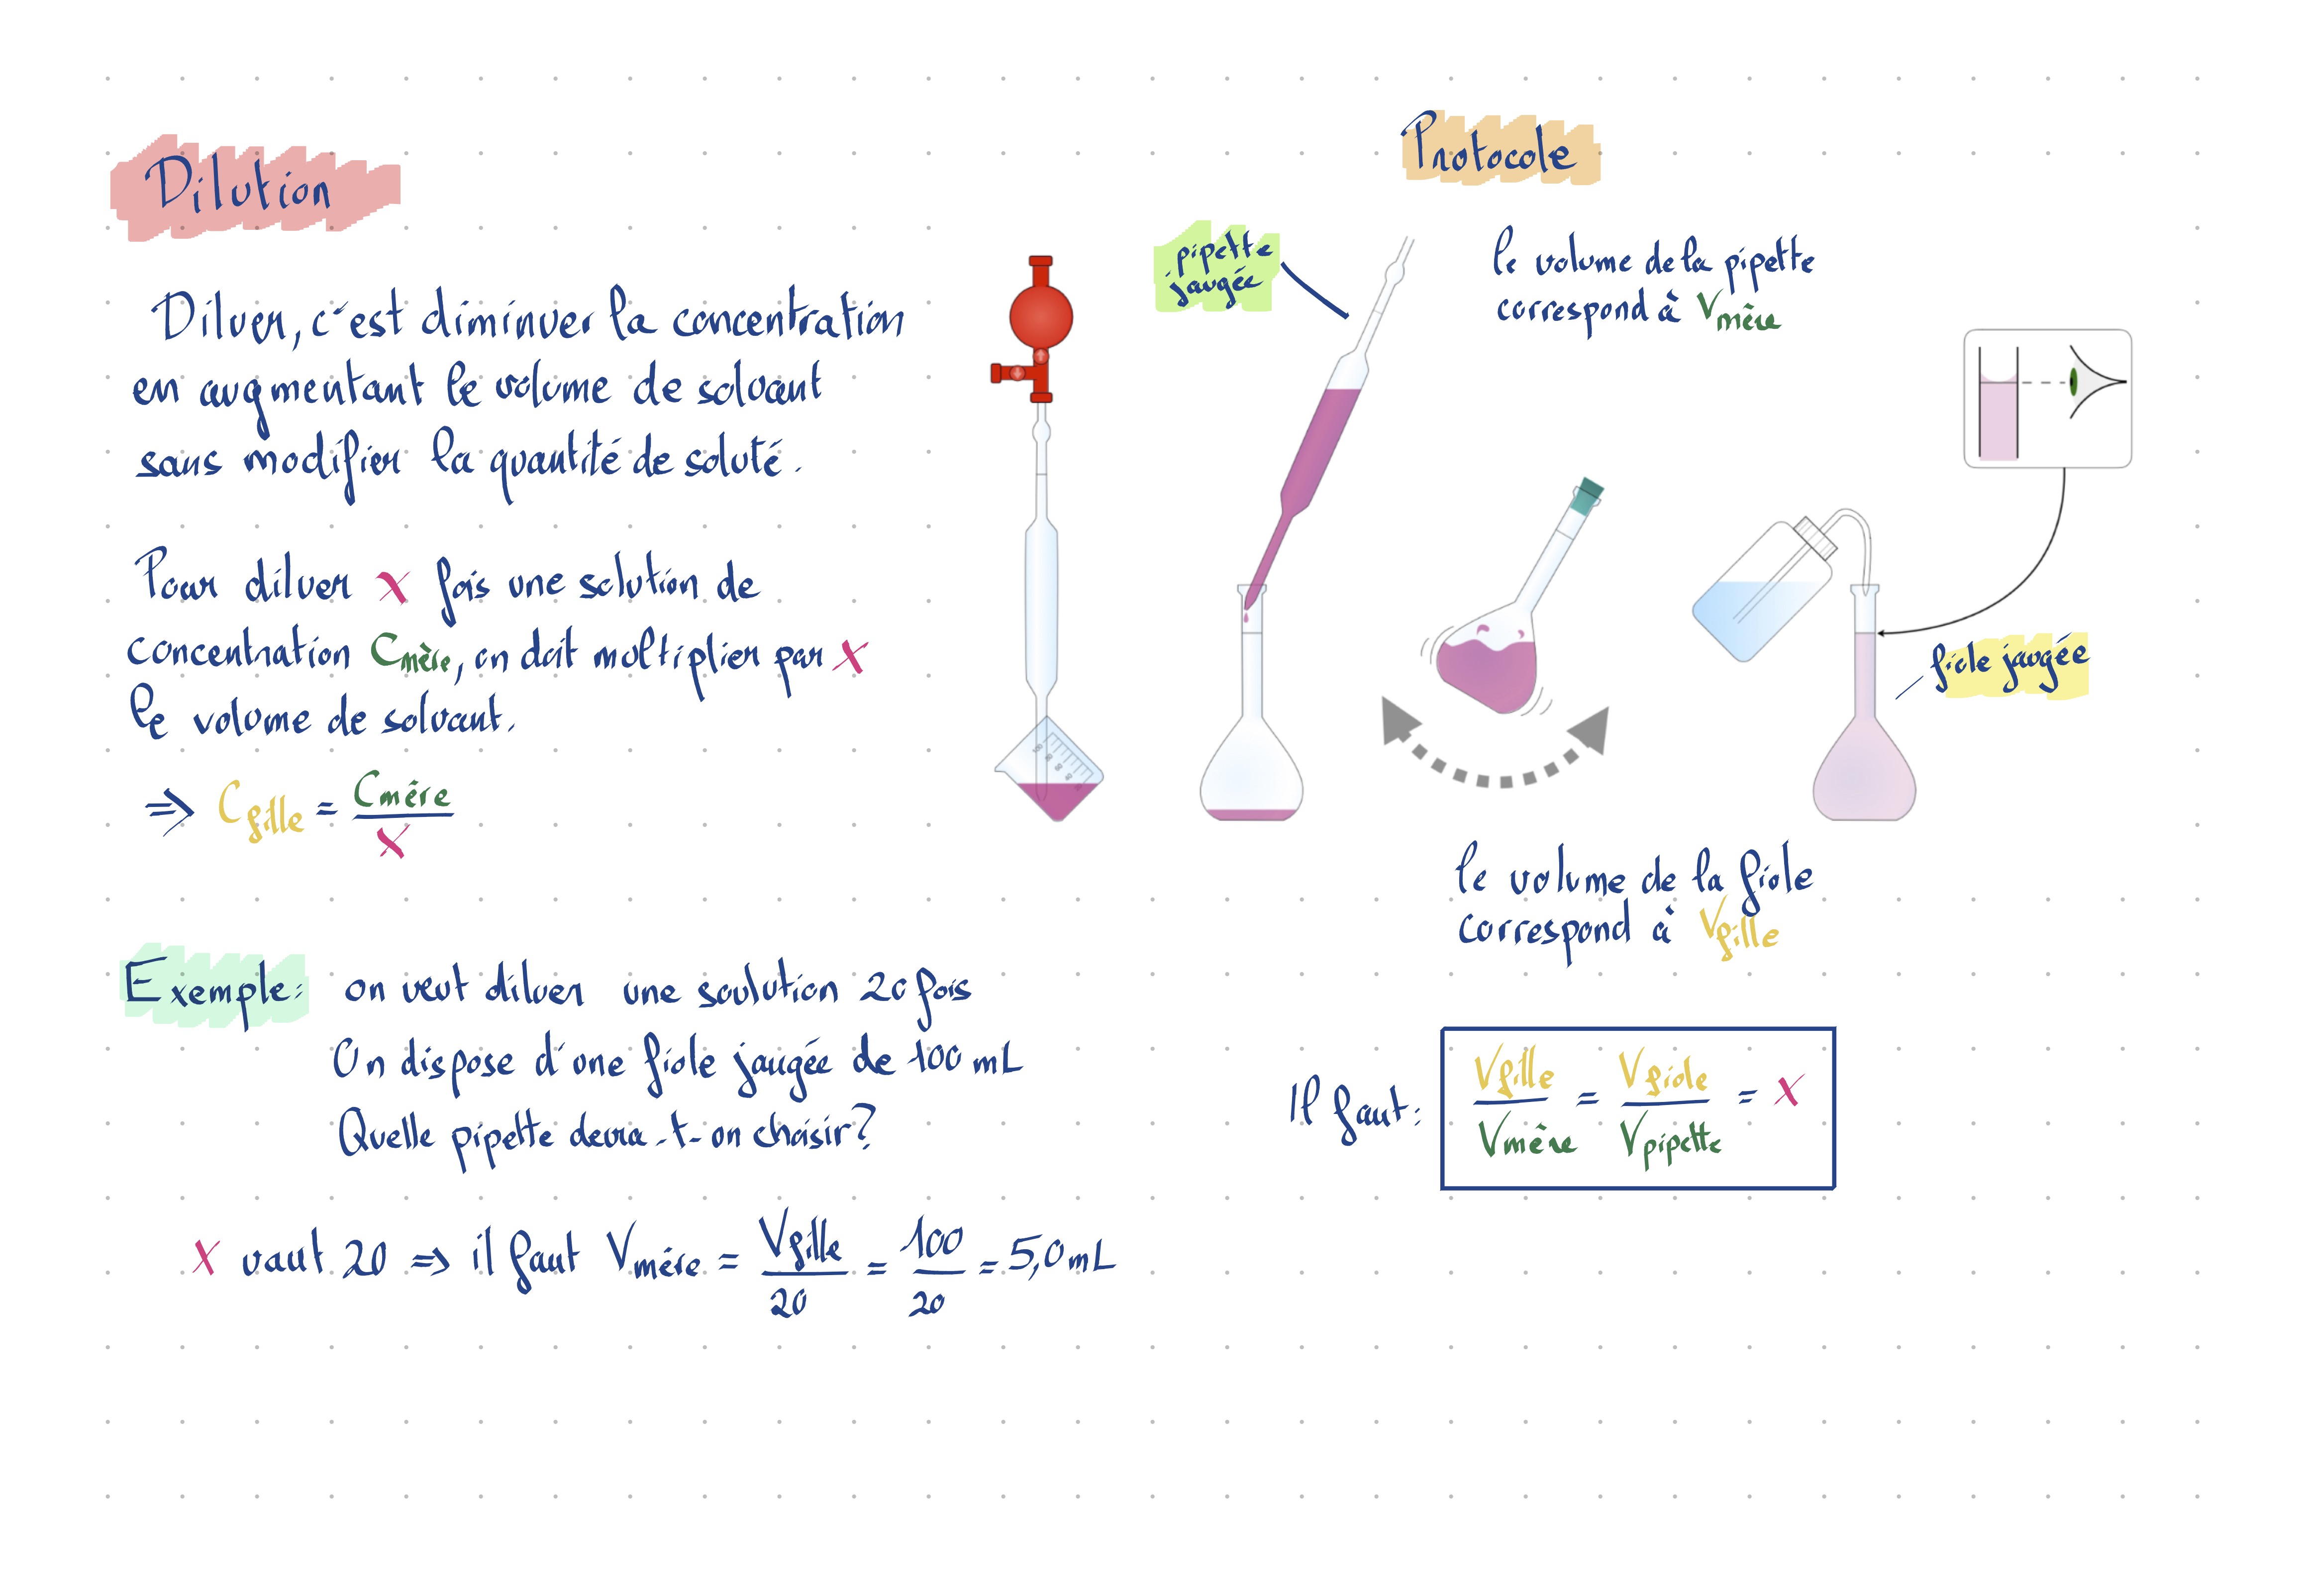 Dilution
Diluer, c'est diminuer la concentration
en augmentant le volume de solvant
sans modifier la quantité de soluté.
Pour diluer x fois une solution de
concentration Cmère, on doit multiplier par x
le volume de solvant.
⇒ Cfille = Cmère / x
Exemple: on veut diluer une soulution 20 fois
On dispose d'une fiole jaugée de 100 mL
Quelle pipette devra-t-on choisir?
x vaut 20 ⇒ il faut Vmère = Vfille / 20 = 100 / 20 = 5,0 mL
Protocole
pipette
jaugée
le volume de la pipette
correspond à Vmère
fiole jaugée
le volume de la fiole
correspond à Vfille
Il faut: Vfille / Vmère = Vfiole / Vpipette = x